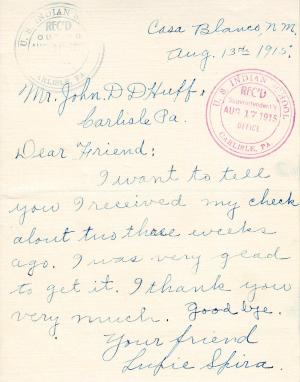 Casa Blanca, N.M.
Aug. 13th 1915.
U.S. INDIAN SCHOOL
REC'D
CARLISLE, PA.
U.S. INDIAN SCHOOL
REC'D
Superintendent's
AUG 17 1915
OFFICE
CARLISLE, PA.
Mr. John D D Huff,
Carlisle Pa.
Dear Friend:
I want to tell
you I received my check
about two three weeks
ago. I was very glad
to get it. I thank you
very much. Good bye.
Your friend
Lupie Spira.